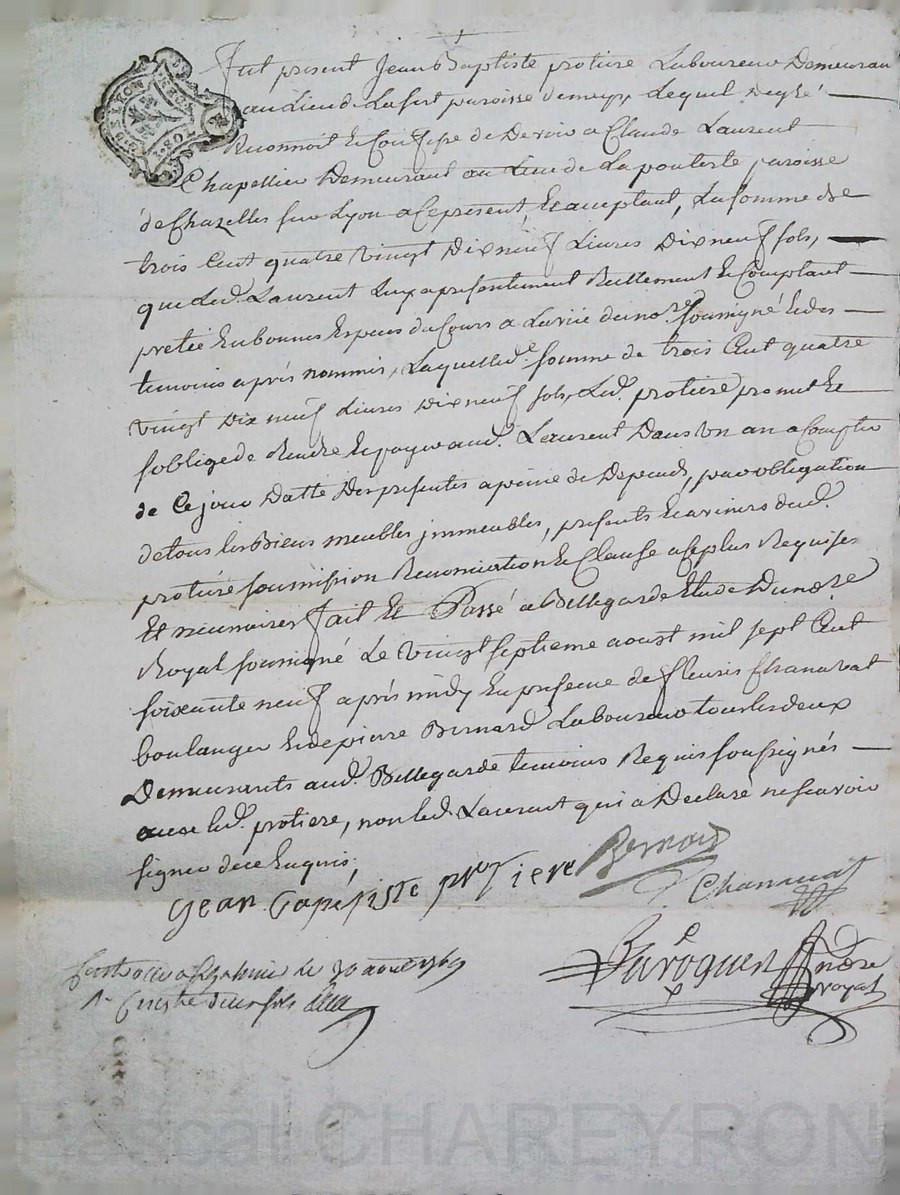 Fut present Jean Baptiste protiere Laboureur Demeurant
au Lieu de Lafort paroisse de meys, Lequel De gré
Reconnoit Et Confesse de Devoir a Claude Laurent
Chapellier Demeurant au Lieu de La pouterle paroisse
de Chazelles sur Lyon a Ce present, Et acceptant, La somme de
trois Cent quatre vingt Dix neuf Livres Dix neuf sols,
que Led. Laurent Luy a presentement Reellement Et Comptant
preté En bonnes Especes du Cours a La vüe du nore. soussigné Et des
temoins aprés nommés, Laquelle de. somme de trois Cent quatre
vingt Dix neuf Livres Dix neuf sols, Led. protiere promet Et
s'oblige de Rendre Et payer aud. Laurent Dans Un an a Compter
de Ce jour Datte Des presentes a peine de Depends, par obligation
de tous les Biens meubles jmmeubles, presents Et avenirs dud.
protiere soumission Renonciation Et Clause a Ce plus Requises
Et necessaires fait Et Passé a Bellegarde Etude Du nore
Royal soussigné Le vingt septieme aoust mil sept Cent
soixante neuf aprés midy En presence de fleuris Chanavat
boulanger Et de pierre Bernard Laboureur tous les deux
Demeurants aud. Bellegarde temoins Requis soussignés
avec led. protiere, non led. Laurent qui a Declaré ne scavoir
signer de ce Enquis,
Bernard
jean Bapetiste protiere
Chanavat
nore
royal
le 30 aout 1769
sols
GEN. DE LYON
Pascal CHAREYRON